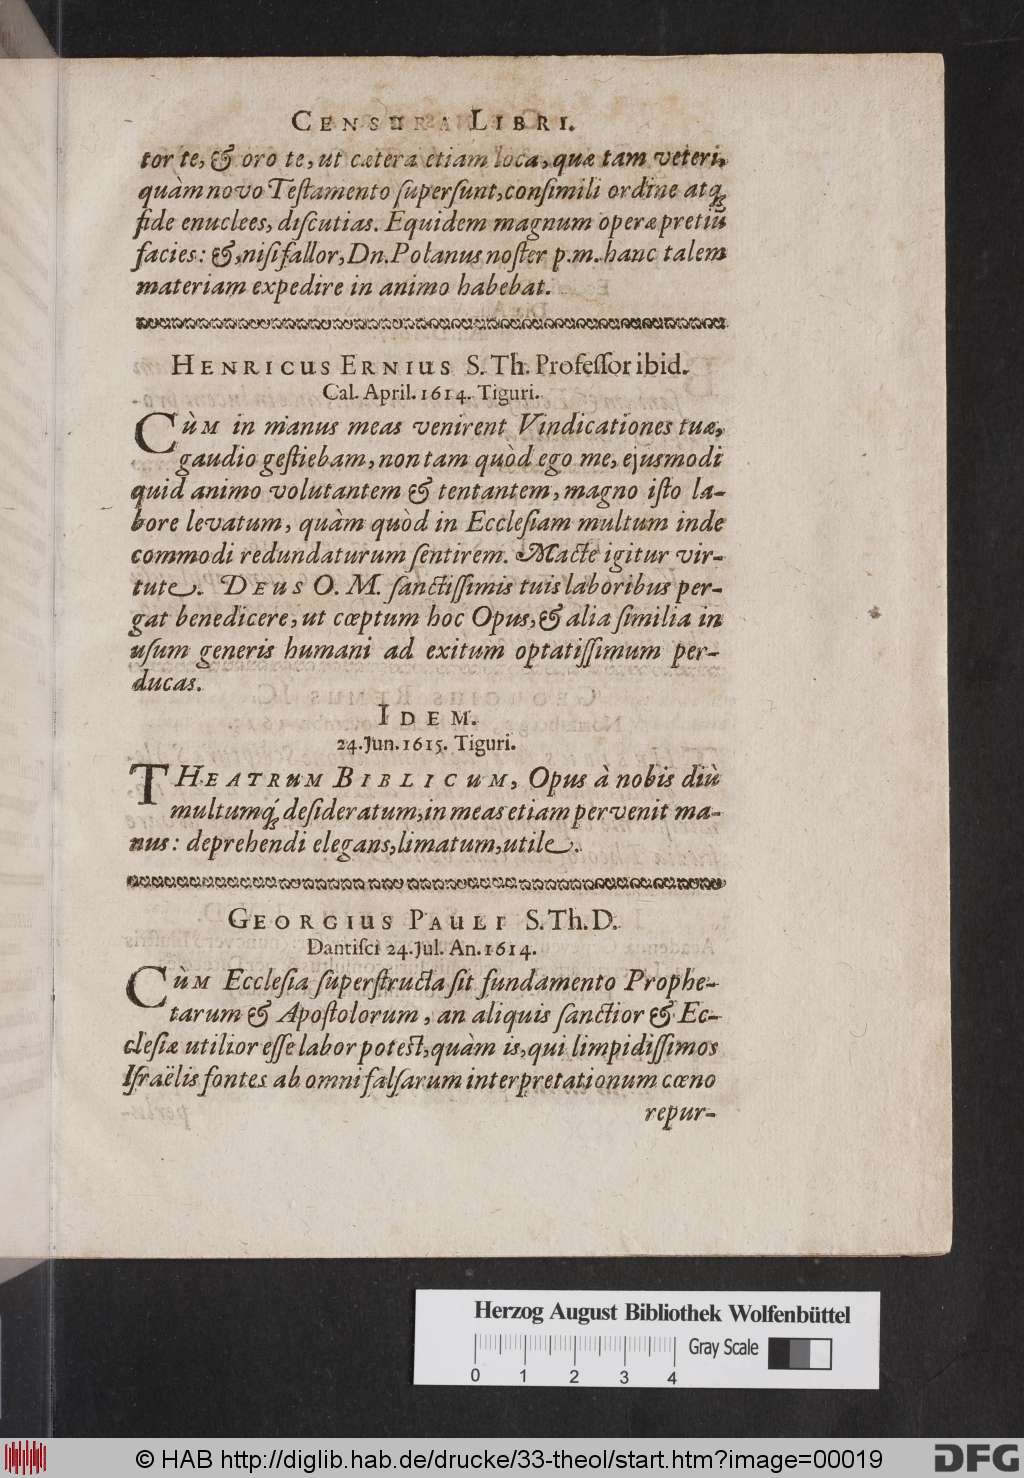 CENSURA LIBRI.
tor te, & oro te, ut cætera etiam loca, quæ tam veteri,
quàm novo Teſtamento ſuperſunt, conſimili ordine atq́;
fide enuclees, diſcutias. Equidem magnum operæpretiũ
facies: &, niſi fallor, Dn. Polanus noſter p. m. hanc talem
materiam expedire in animo habebat.
HENRICUS ERNIUS S. Th. Profeſſor ibid.
Cal. April. 1614. Tiguri.
CÙM in manus meas venirent Vindicationes tuæ,
gaudio geſtiebam, non tam quòd ego me, ejusmodi
quid animo volutantem & tentantem, magno iſto la-
bore levatum, quàm quòd in Eccleſiam multum inde
commodi redundaturum ſentirem. Macte igitur vir-
tute. DEUS O. M. ſanctiſſimis tuis laboribus per-
gat benedicere, ut cœptum hoc Opus, & alia ſimilia in
uſum generis humani ad exitum optatiſſimum per-
ducas.
IDEM.
24. Jun. 1615. Tiguri.
THEATRUM BIBLICUM, Opus à nobis diù
multumq́; deſideratum, in meas etiam pervenit ma-
nus: deprehendi elegans, limatum, utile.
GEORGIUS PAULI S. Th. D.
Dantiſci 24. Jul. An. 1614.
CÙM Eccleſia ſuperſtructa ſit fundamento Prophe-
tarum & Apoſtolorum, an aliquis ſanctior & Ec-
cleſiæ utilior eſſe labor poteſt, quàm is, qui limpidiſſimos
Iſraëlis fontes ab omni falſarum interpretationum cœno
repur-
Herzog August Bibliothek Wolfenbüttel
Gray Scale
0 1 2 3 4
© HAB http://diglib.hab.de/drucke/33-theol/start.htm?image=00019
DFG